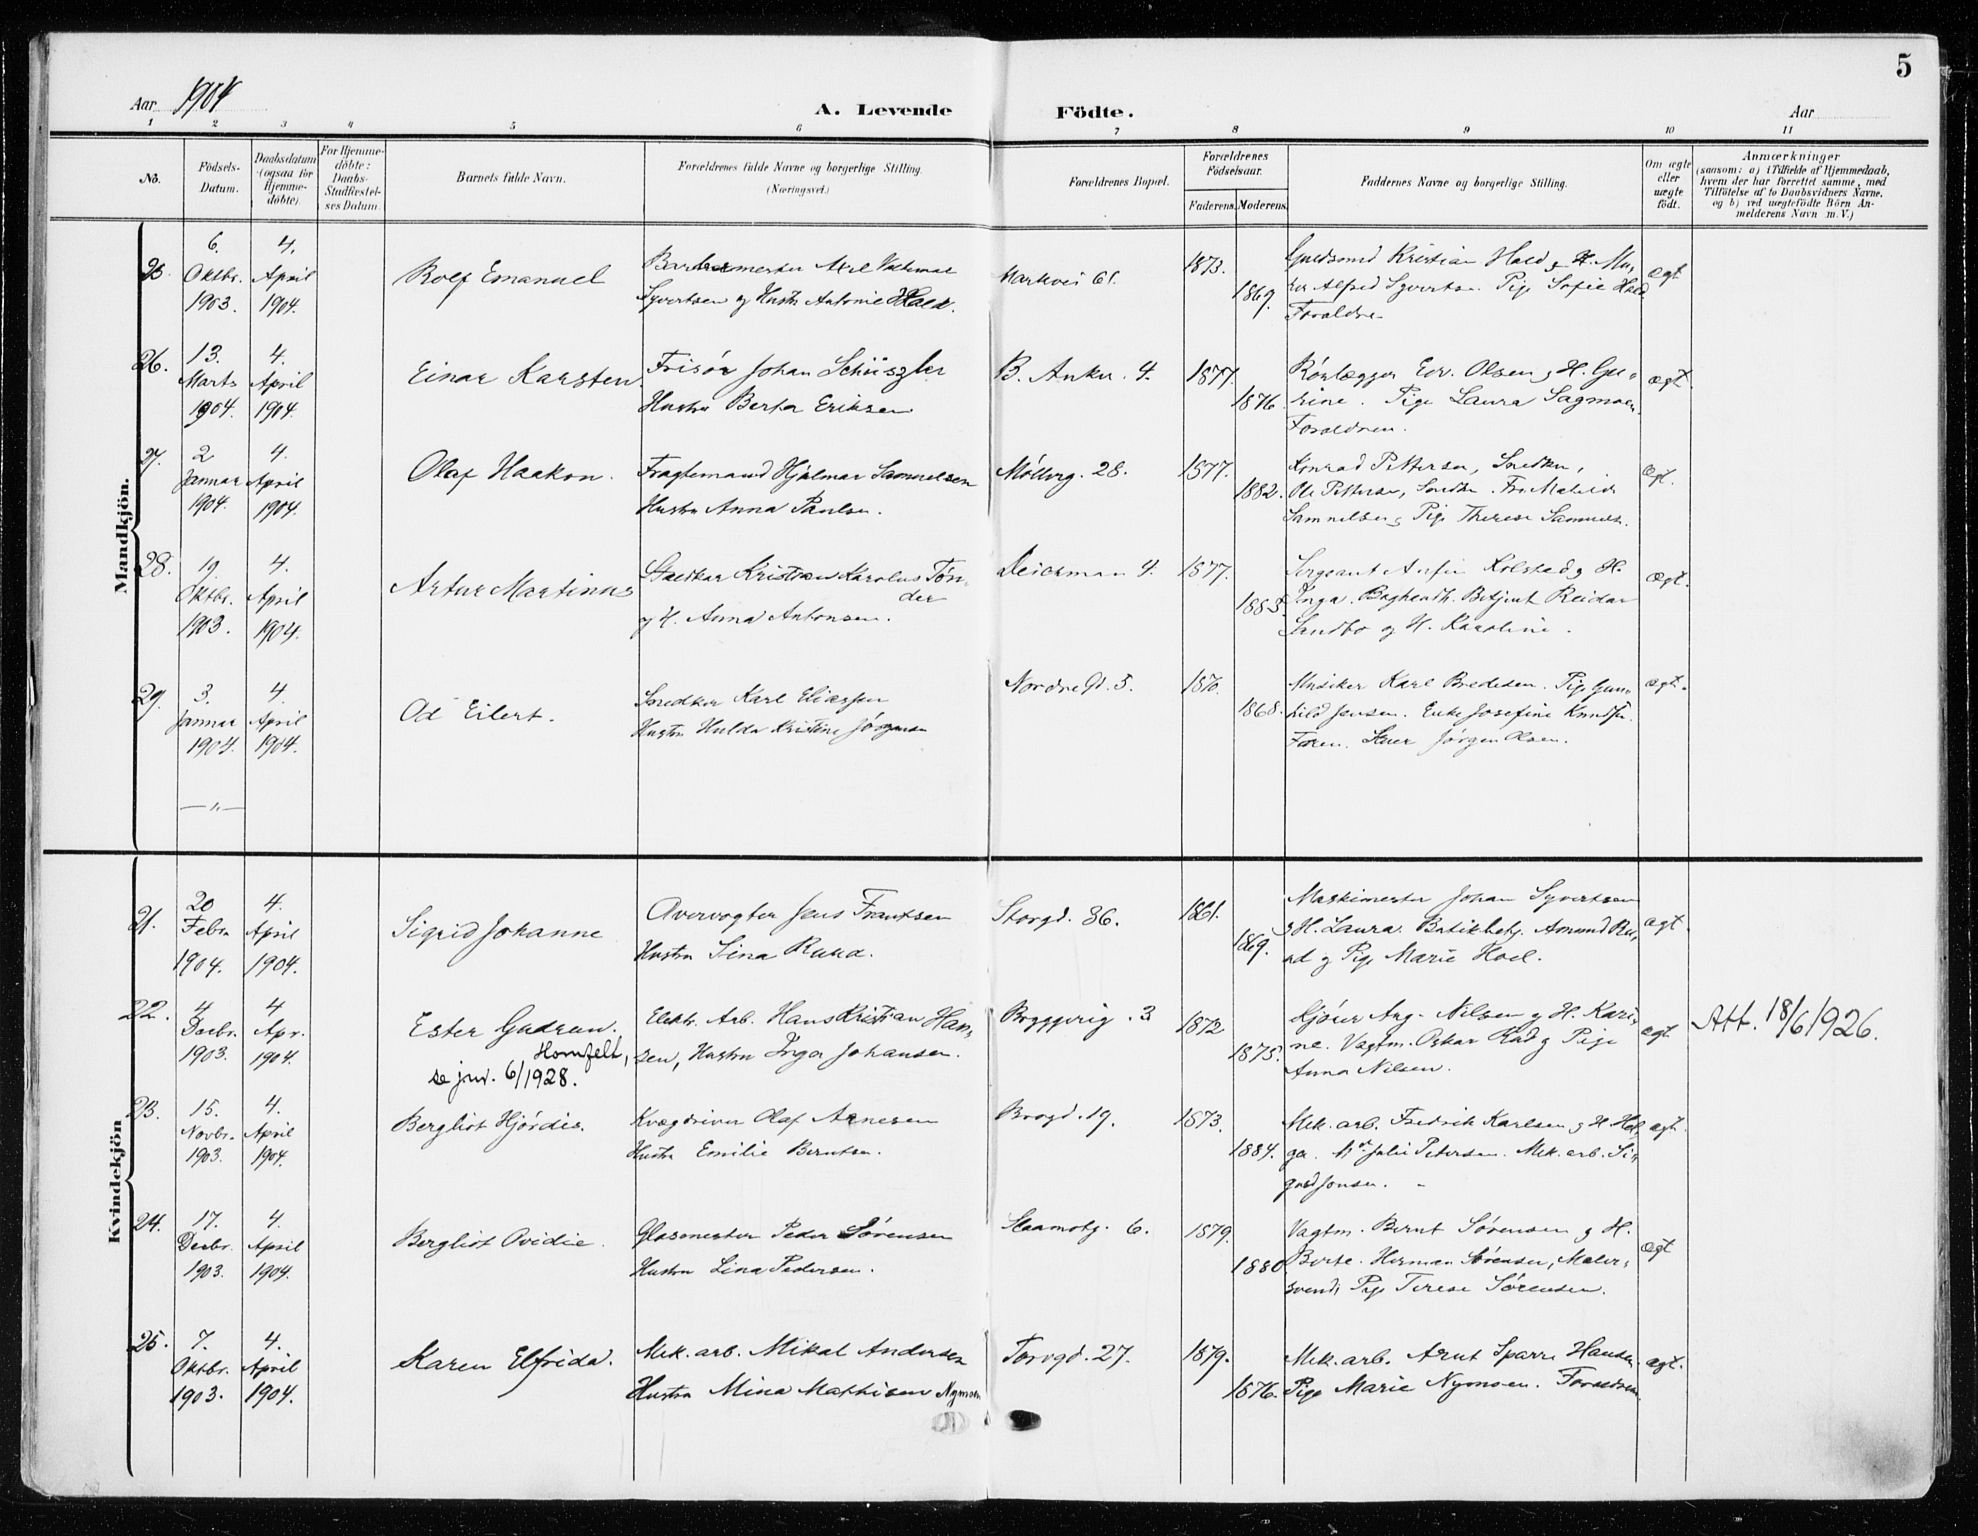 5
Aar 1904
A. Levende Födte.
Aar
1 2 3 4 5 6 7 8 9 10 11
No.
Födsels-
Datum.
Daabsdatum
(ogsaa for
Hjemme-
döbte).
For Hjemme-
döbte:
Daabs-
Stadfæstel-
ses Datum.
Barnets fulde Navn.
Forældrenes fulde Navne og borgerlige Stilling.
(Næringsvei.)
Forældrenes Bopæl.
Forældrenes
Födselsaar.
Faderens. Moderens.
Faddernes Navne og borgerlige Stilling.
Om ægte
eller
uægte
födt.
Anmærkninger
(saasom: a) i Tilfælde af Hjemmedaab,
hvem der har forrettet samme, med
Tilföielse af to Daabsvidners Navne,
og b) ved uægtefödte Börn An-
melderens Navn m. V.)
Mandkjön.
25.
6.
Oktbr.
1903.
4.
April
1904.
Rolf Emanuel
Barbermester Axel
Syvertsen og Hustr Antonie Hald.
Markvei 61.
1873.
1869.
Guldsmed Kristian Hald og H.
Alfred Syvertsen. Pige Sofie Hald
Forældre
ægt
26.
13.
Marts
1904.
4.
April
1904.
Einar Karsten
Frisör Johan Schüszler
Hustru Berta Eriksen
B. Anker. 4.
1877.
1876.
Rörlægger Edv. Olsen og H.
Pige Laura Sagmoen.
Forældrene.
ægt.
27.
2
Januar
1904.
4.
April
1904.
Olaf Haakon.
Fragtemand Hjalmar Samuelsen
Hustru Anna Paulsen.
Möllerg. 28.
1877.
1882.
Konrad Pettersen, Snedker,
Ole Pettersen, Snedker.
Samuelsen og Pige Therese Samuels.
Ægt.
28.
19
Oktbr.
1903.
4.
April
1904.
Artur Martinus
Kristian Karolus Tön-
der
og H. Anna Antonsen.
Deichman 4.
1877.
1883.
Sergeant Kolstad og H.
Inga. Betjent Reidar
Sandbo og H. Karoline.
Ægt.
29.
3.
Januar
1904.
4
April
1904.
Od Eilert.
Snedker Karl Eliassen
Hustru Hulda Kristine Jörgensen
Nordre Gd. 3.
1870.
1868.
Musiker Karl Bredesen. Pige Gun-
hild Jensen. Enke Josefine Knudsen.
Faren. Jörgen Olsen.
ægt.
Kvindekjön
21.
20
Febr
1904.
4.
April
1904.
Sigrid Johanne
Avervogter Jens Frantsen
Hustru Lina Ruud.
Storgd. 36.
1861.
1869.
Maskinmester Johan Syvertsen
og H. Laura. Amund Ru-
ud og Pige Marie Hoel.
ægt.
22.
4
Decbr.
1903.
4
Apr.
1904.
Ester Gudrun.
Hornfelt,
se jnr. 6/1928.
Elektr. Arb. Hans Kristian Han-
sen, Hustru Inga Johansen.
Byggverig. 3
1872
1875.
Kjörer Aug. Nilsen og H. Kari-
ne. Vagtm. Oskar og Pige
Anna Nilsen.
ægt
Att. 18/6 1926.
23.
15.
Novbr.
1903.
4.
April
1904.
Bergliot Hjördis.
Kvægdriver Olaf Arnesen
Hustru Emilie Berntsen.
Brogd. 19.
1873.
1884.
Mek. arb. Fredrik Karlsen og H Hel-
ga. Julie Petersen. Mek. arb. Si-
gurd Jonsen.
ægt.
24.
17.
Decbr.
1903.
4.
April
1904.
Bergliot Ovidie.
Glasmester Peder Sörensen
Hustru Lina Pedersen.
6.
1879.
1880
Vagtm. Bernt Sörensen og H.
Berte. Herman Sörensen, Maler-
svend, Pige Terese Sörensen.
ægt
25.
7.
Oktbr.
1903.
4.
April
1904.
Karen Elfrida.
Mek. arb. Mikal Andersen
Hustru Mina Mathisen Nymoen
Torvgd. 27.
1879.
1876.
Mek. arb. Arnt Sparre Hansen.
Pige Marie Nymoen. Forældrene
ægt.